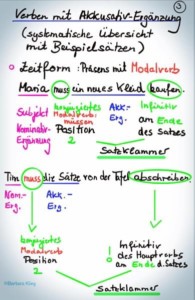 3
Verben mit Akkusativ-Ergänzung
(systematische Übersicht
mit Beispielsätzen)
Zeitform: Präsens mit Modalverb
Maria muss ein neues Kleid kaufen.
Subjekt konjugiertes Akk.- Infinitiv
Nominativ- Modalverb: Erg. am Ende
Ergänzung müssen des Satzes
Position
2
Satzklammer
Tim muss die Sätze von der Tafel abschreiben
Nom.- Akk.-
Erg. Erg.
konjugiertes Infinitiv
Modalverb des Hauptverbs
Position am Ende d. Satzes
2
Satzklammer